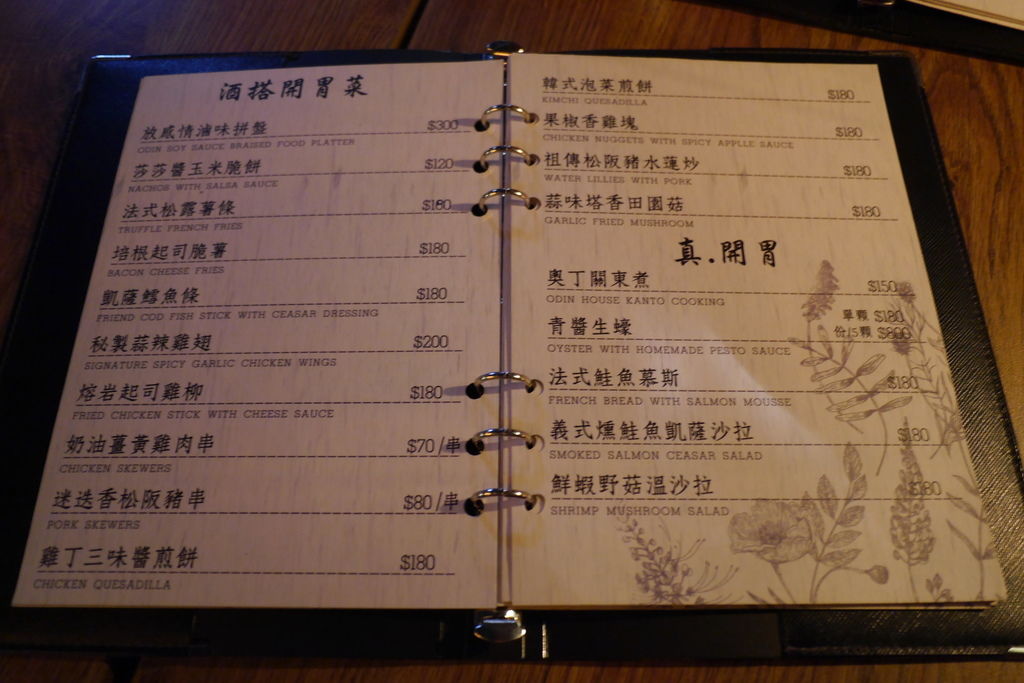 酒搭開胃菜
放感情滷味拼盤 $300
ODIN SOY SAUCE BRAISED FOOD PLATTER
莎莎醬玉米脆餅 $120
NACHOS WITH SALSA SAUCE
法式松露薯條 $180
TRUFFLE FRENCH FRIES
培根起司脆薯 $180
BACON CHEESE FRIES
凱薩鱈魚條 $180
FRIEND COD FISH STICK WITH CEASAR DRESSING
秘製蒜辣雞翅 $200
SIGNATURE SPICY GARLIC CHICKEN WINGS
熔岩起司雞柳 $180
FRIED CHICKEN STICK WITH CHEESE SAUCE
奶油薑黃雞肉串 $70/串
CHICKEN SKEWERS
迷迭香松阪豬串 $80/串
PORK SKEWERS
雞丁三味醬煎餅 $180
CHICKEN QUESADILLA
韓式泡菜煎餅 $180
KIMCHI QUESADILLA
果椒香雞塊 $180
CHICKEN NUGGETS WITH SPICY APPLLE SAUCE
祖傳松阪豬水蓮炒 $180
WATER LILLIES WITH PORK
蒜味塔香田園菇 $180
GARLIC FRIED MUSHROOM
真.開胃
奧丁關東煮 $150
ODIN HOUSE KANTO COOKING
青醬生蠔 單顆 $180
份/5顆 $800
OYSTER WITH HOMEMADE PESTO SAUCE
法式鮭魚慕斯 $180
FRENCH BREAD WITH SALMON MOUSSE
義式燻鮭魚凱薩沙拉 $180
SMOKED SALMON CEASAR SALAD
鮮蝦野菇溫沙拉 $180
SHRIMP MUSHROOM SALAD